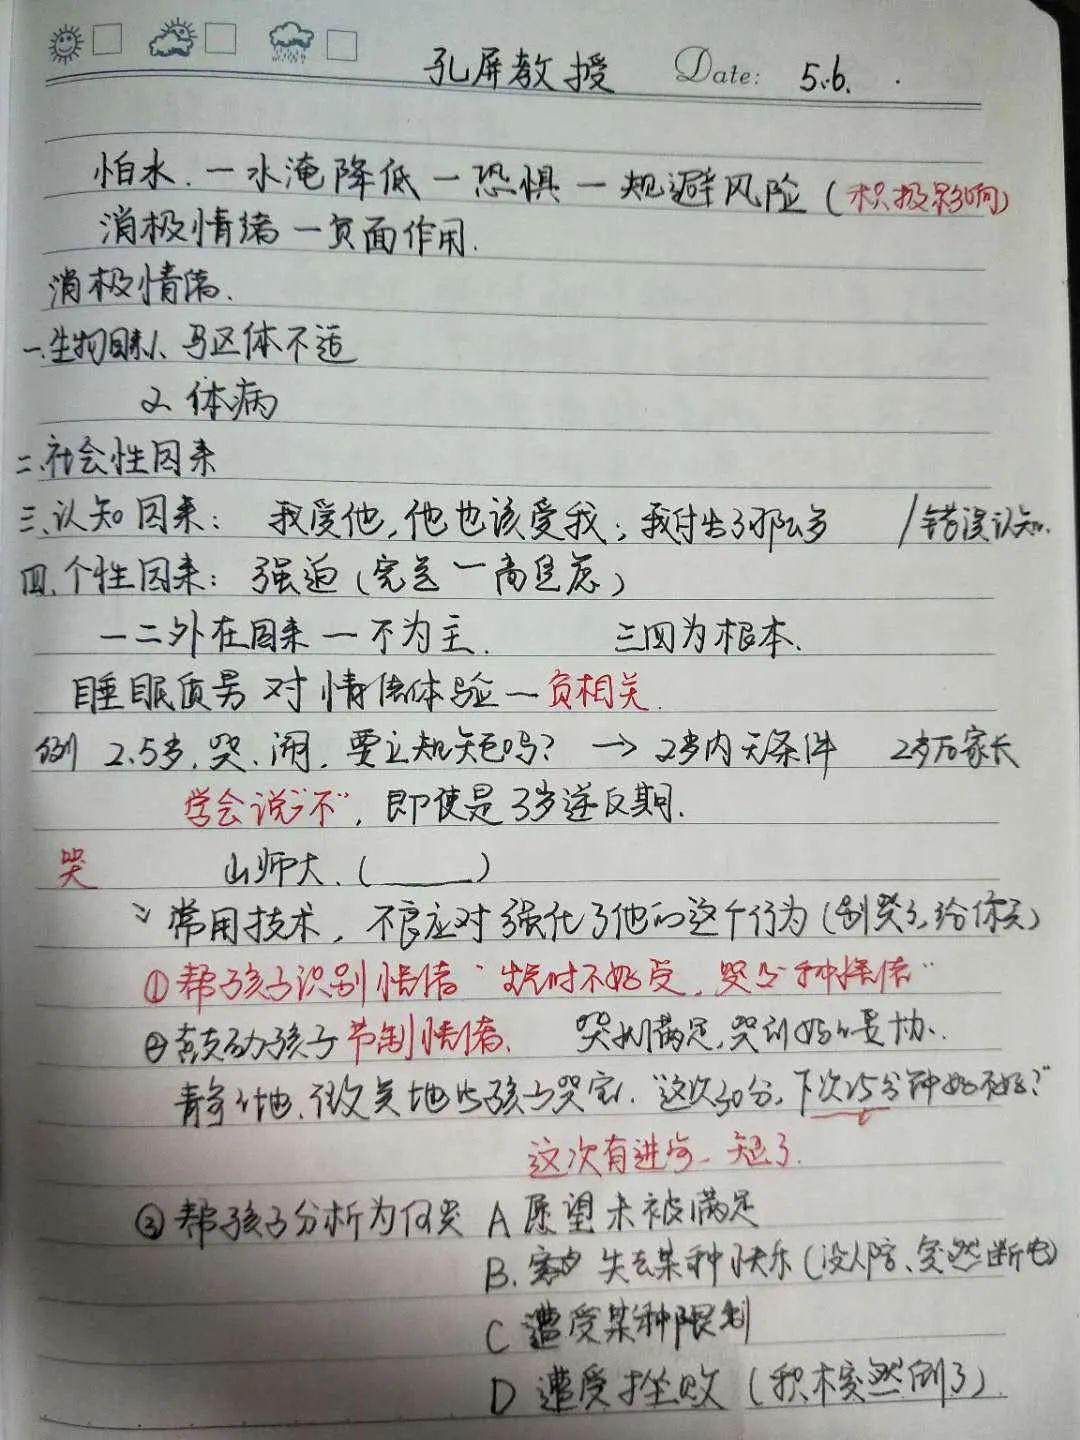 孔屏教授 Date: 5.6.
怕水.一水淹降低一恐惧一规避风险(积极影响)
消极情绪一负面作用.
消极情绪.
一.生物因素1、马区体不适
2. 体病
二.社会性因素
三.认知因素: 我爱他,他也该爱我;我付出了那么多 /错误认知.
四.个性因素: 强迫(完美一高焦虑)
一二外在因素一不为主. 三四为根本.
睡眠质量对情绪体验一负相关.
例 2.5岁,哭、闹,要立规矩吗? → 2岁内无条件 2岁后家长
学会说"不",即使是3岁逆反期.
哭 山师大.( )
常用技术,不良应对强化了他的这个行为(别哭了,给你买)
①帮孩子识别情绪"生气时不好受,哭是一种情绪"
②鼓励孩子节制情绪. 哭 满足,哭 妥协.
静静地, 地 孩子哭完."这次30分,下次25分钟好不好?"
这次有进步一短了.
③帮孩子分析为何哭 A 愿望未被满足
B. 失去某种快乐(没人陪、突然断电)
C 遭受某种限制
D 遭受挫败(积木突然倒了)